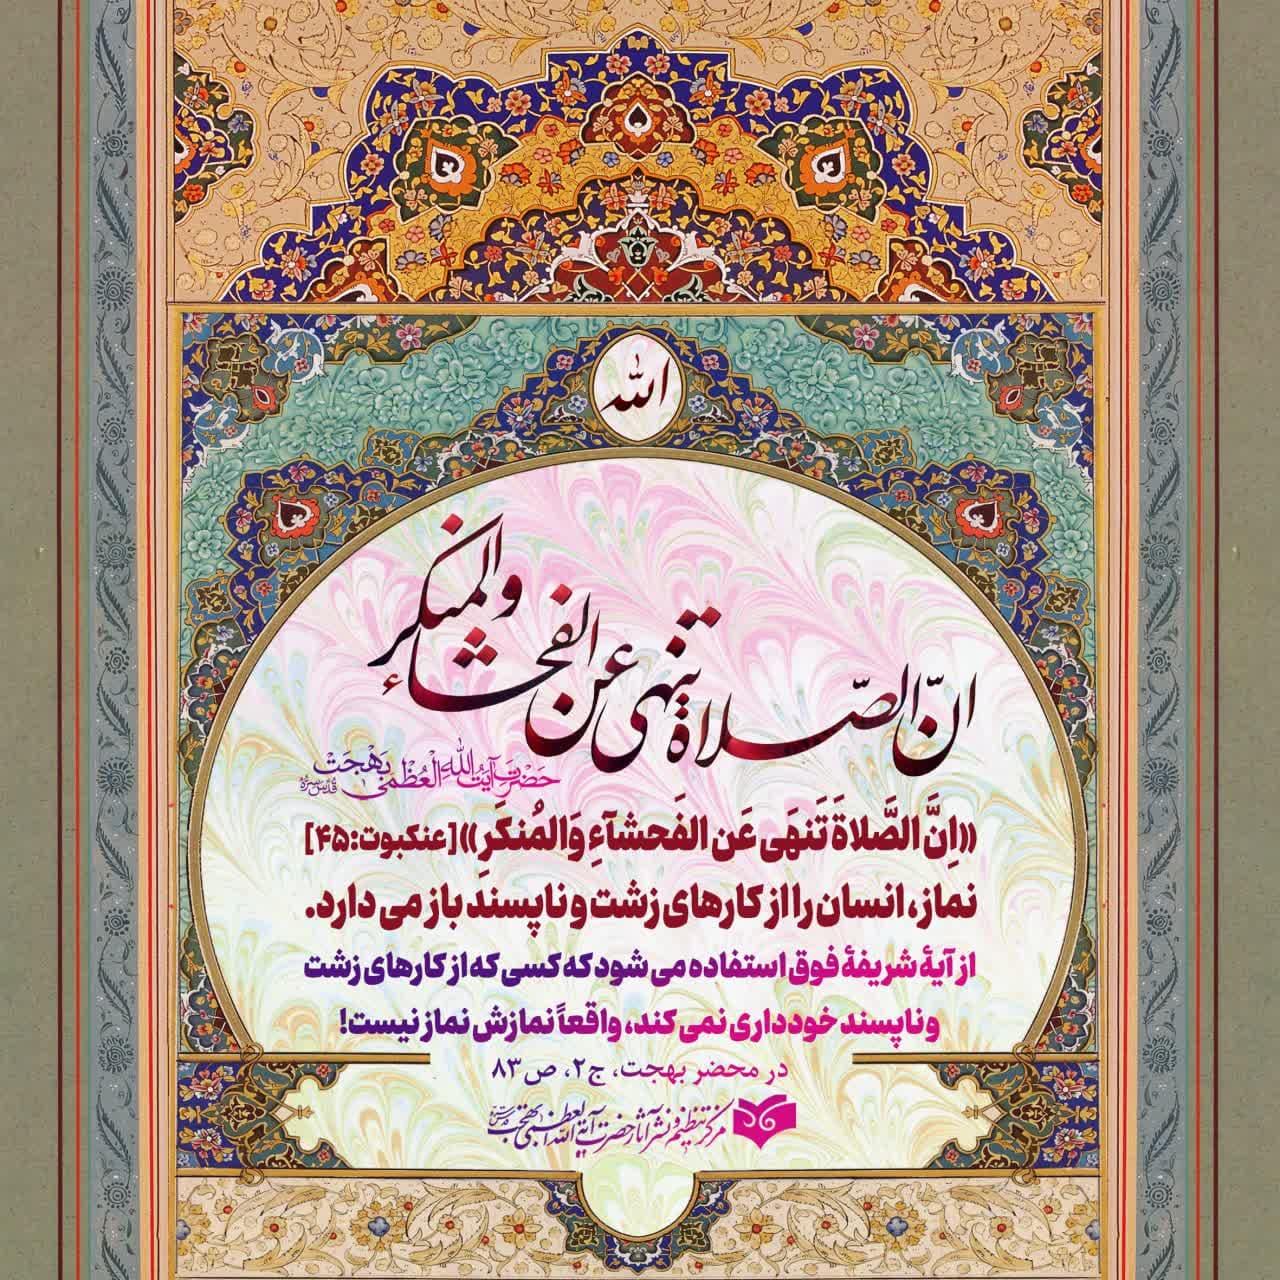 الله
انّ الصّلاة تنهی عن الفحشاء والمنکر
حَضْرَتِ آیَتُ اللهِ الْعُظْمیٰ بَهْجَتْ قُدِّسَ سِرُّهُ
«اِنَّ الصَّلاةَ تَنهَی عَن الفَحشآءِ وَالمُنکَرِ» [عنکبوت:۴۵]
نماز، انسان را از کارهای زشت و ناپسند باز می دارد.
از آیۀ شریفۀ فوق استفاده می شود که کسی که از کارهای زشت
و ناپسند خودداری نمی کند، واقعاً نمازش نماز نیست!
در محضر بهجت، ج۲، ص۸۳
مرکز تنظیم و نشر آثار حضرت آیة الله العظمی بهجت